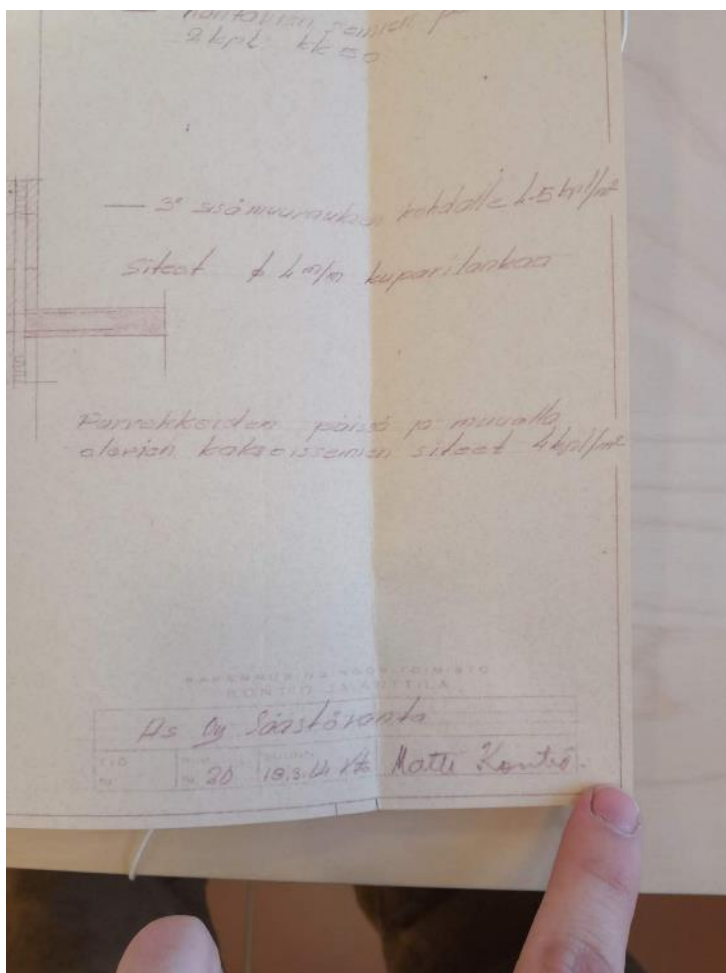 8 kpl
— 3" sisämuurauksen kohdalle 4-5 kpl/m²
siteet ϕ 4 m/m kuparilankaa
Parvekkeiden päissä ja muualla
olevien kaksoisseinien siteet 4 kpl/m²
RAKENNUSINSINÖÖRITOIMISTO
KONTIO JA ANTTILA
As Oy Säästöranta
TYÖ
N:o 20 Matti Kontio.